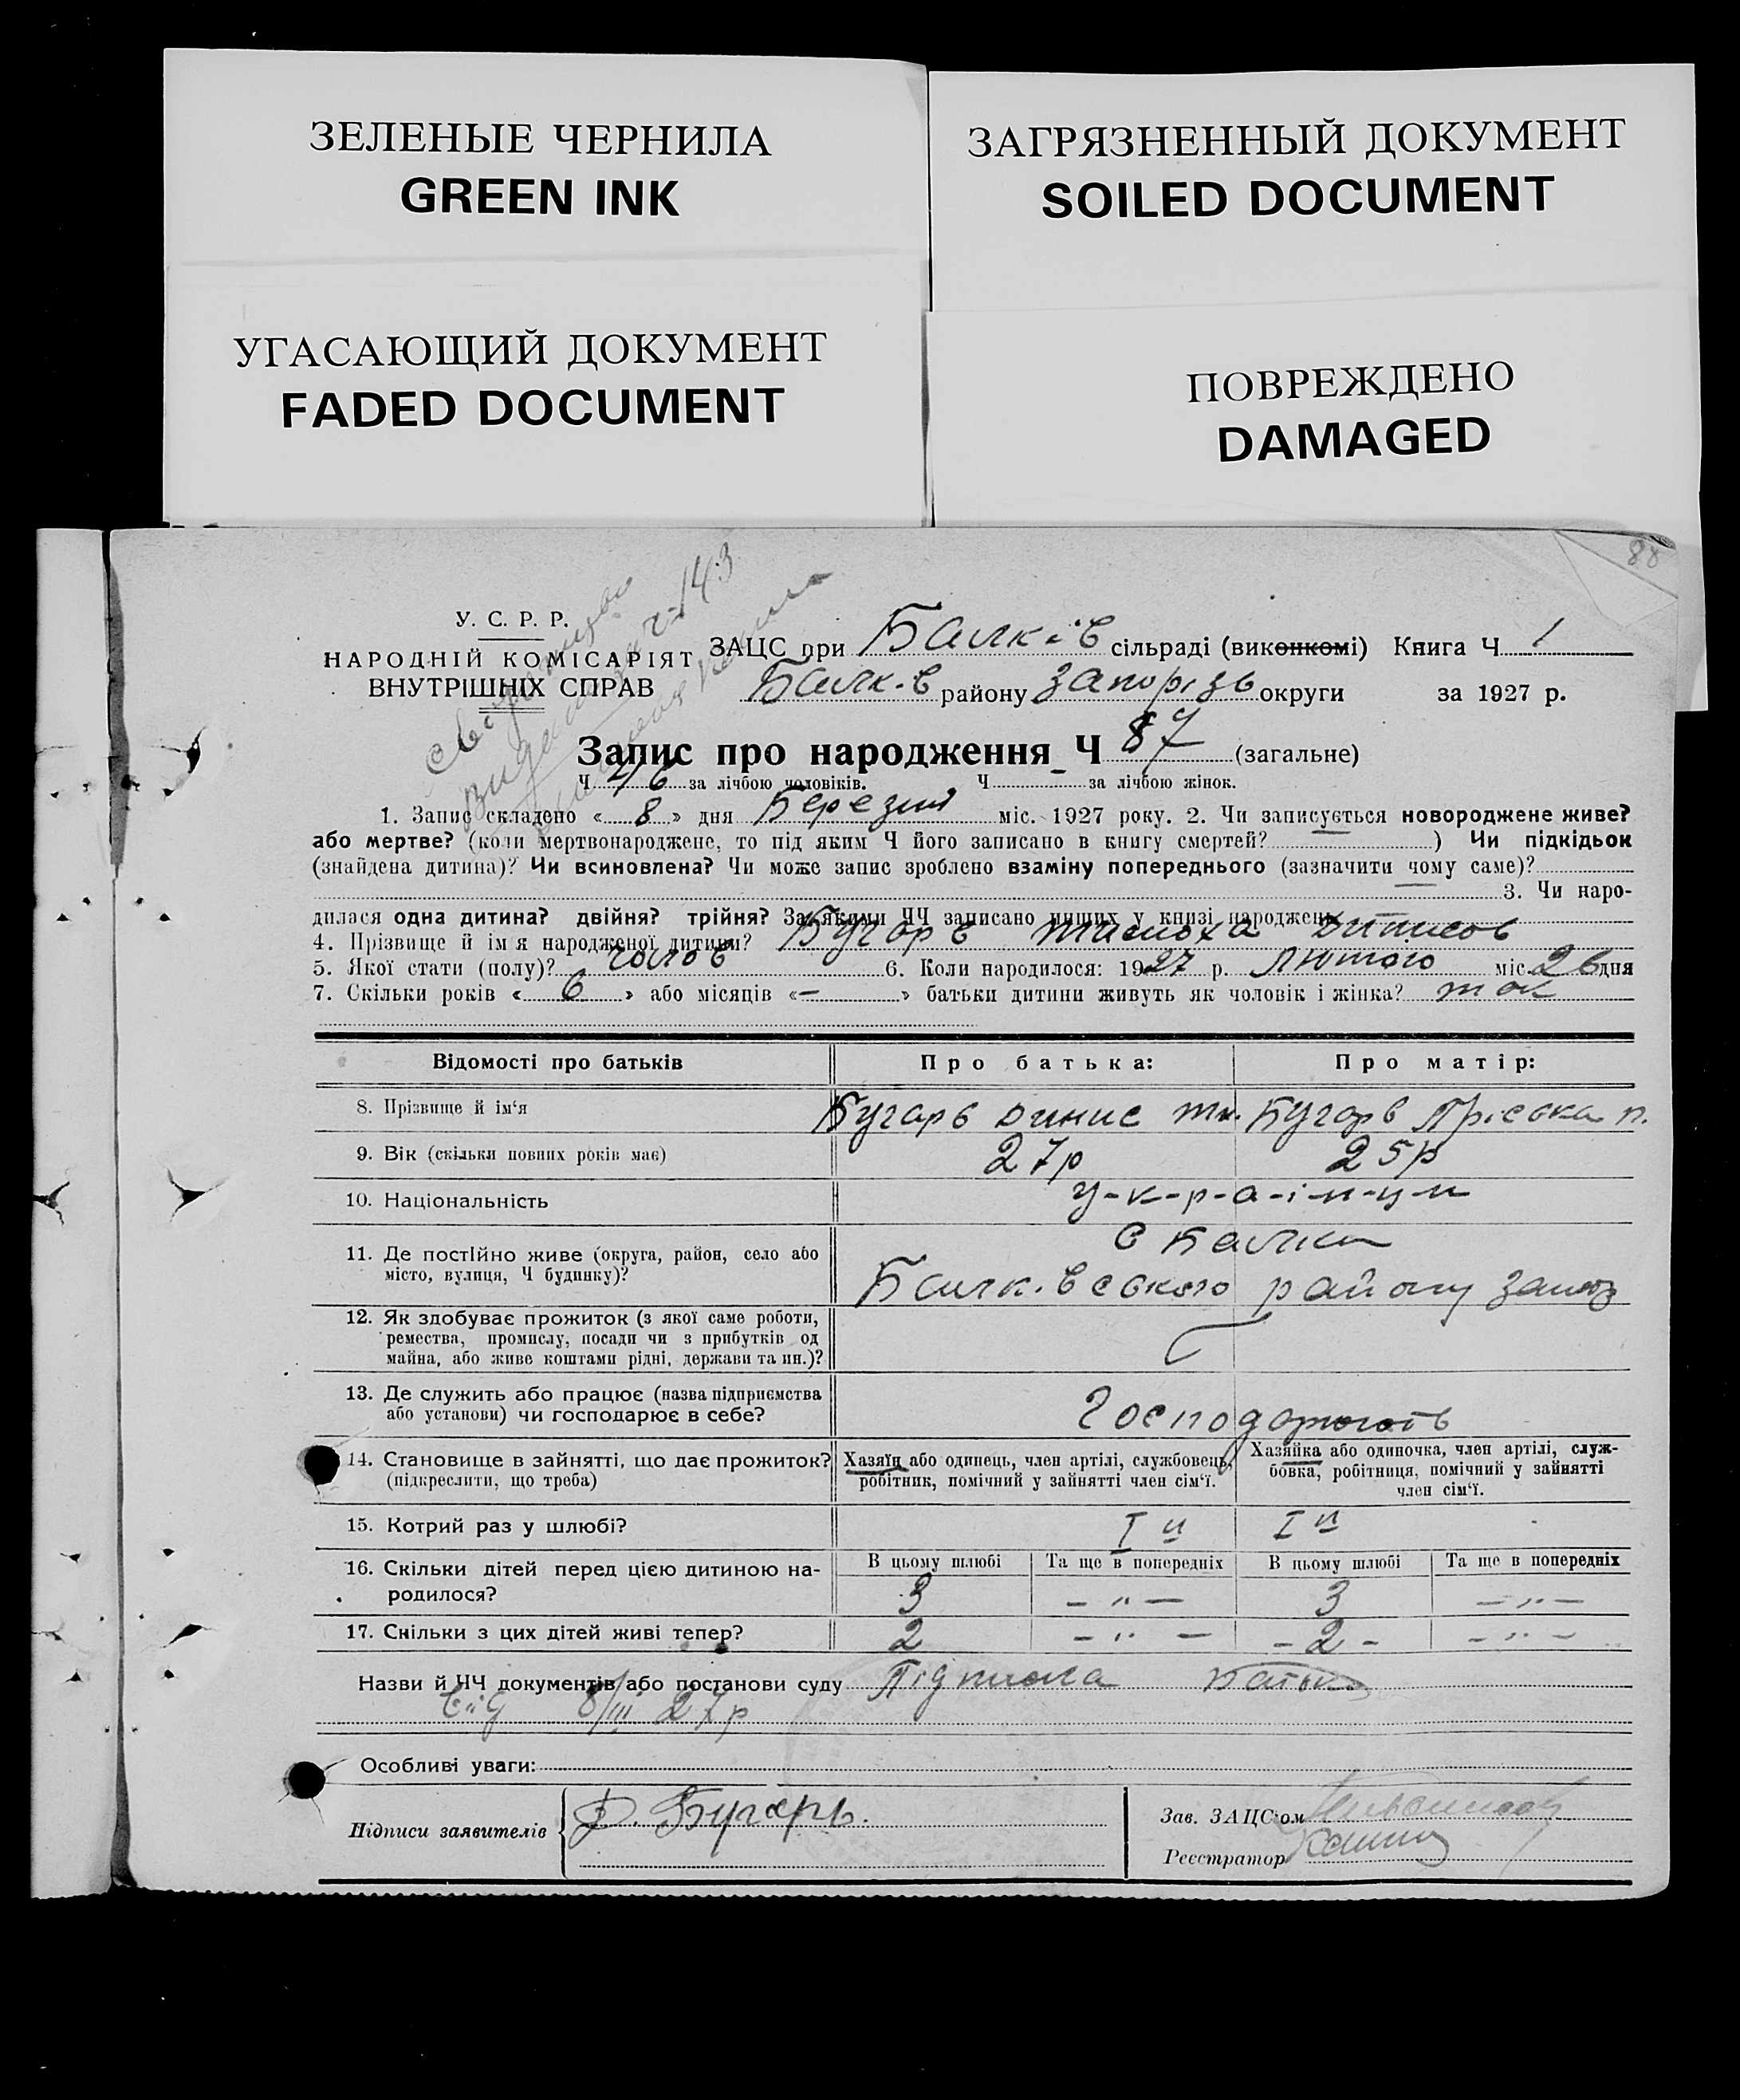 ЗЕЛЕНЫЕ ЧЕРНИЛА
GREEN INK
ЗАГРЯЗНЕННЫЙ ДОКУМЕНТ
SOILED DOCUMENT
УГАСАЮЩИЙ ДОКУМЕНТ
FADED DOCUMENT
ПОВРЕЖДЕНО
DAMAGED
88
У. С. Р. Р.
НАРОДНІЙ КОМІСАРІЯТ
ВНУТРІШНІХ СПРАВ
143
ЗАЦС при Балк-ів сільраді (виконкомі) Книга Ч 1
Балк-в району Запорізь округи за 1927 р.
Запис про народження Ч 87 (загальне)
Ч 46 за лічбою чоловіків. Ч - за лічбою жінок.
1. Запис складено « 8 » дня Березня міс. 1927 року. 2. Чи записується новороджене живе?
або мертве? (коли мертвонароджене, то під яким Ч його записано в книгу смертей? ) Чи підкідьок
(знайдена дитина)? Чи всиновлена? Чи може запис зроблено взаміну попереднього (зазначити чому саме)?
3. Чи наро-
дилася одна дитина? двійня? трійня? За якими ЧЧ записано инших у книзі народжень
4. Прізвище й ім'я народженої дитини? Бугарь
5. Якої стати (полу)? чолов 6. Коли народилося: 1927 р. Лютого міс. 26 дня
7. Скільки років « 6 » або місяців «-» батьки дитини живуть як чоловік і жінка? так
Відомості про батьків Про батька: Про матір:
8. Прізвище й ім'я Бугарь Динис Бугарь п.
9. Вік (скільки повних років має) 27р 25р
10. Національність у-к-р-а-ї-н-ц-и
11. Де постійно живе (округа, район, село або
місто, вулиця, Ч будинку)?
с Балки
Балк-вського району Запоз
12. Як здобуває прожиток (з якої саме роботи,
ремества, промислу, посади чи з прибутків од
майна, або живе коштами рідні, держави та ин.)?
13. Де служить або працює (назва підприємства
або установи) чи господарює в себе?
Господарюють
14. Становище в зайнятті, що дає прожиток?
(підкреслити, що треба)
Хазяїн або одинець, член артілі, службовець,
робітник, помічний у зайнятті член сім'ї.
Хазяйка або одиночка, член артілі, служ-
бовка, робітниця, помічний у зайнятті
член сім'ї.
15. Котрий раз у шлюбі? I й I й
16. Скільки дітей перед цією дитиною на-
родилося?
В цьому шлюбі Та ще в попередніх В цьому шлюбі Та ще в попередніх
3 - " - 3 - " -
17. Скільки з цих дітей живі тепер? 2 - " - - 2 - - " -
Назви й ЧЧ документів або постанови суду Підписка батька
від 8/III 27 р
Особливі уваги:
Підписи заявителів Д. Бугарь.
Зав. ЗАЦС'ом
Реєстратор